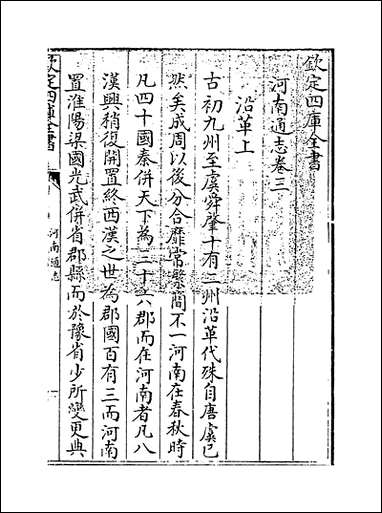 欽定四庫全書
河南通志卷三
沿革上
古初九州至虞舜肇十有二州沿革代殊自唐虞已
然矣成周以後分合靡常繁簡不一河南在春秋時
凡四十國秦併天下為三十六郡而在河南者凡八
漢興稍復開置終西漢之世為郡國百有三而河南
置淮陽梁國光武併省郡縣而於豫省少所變更典
欽定四庫全書
河南通志